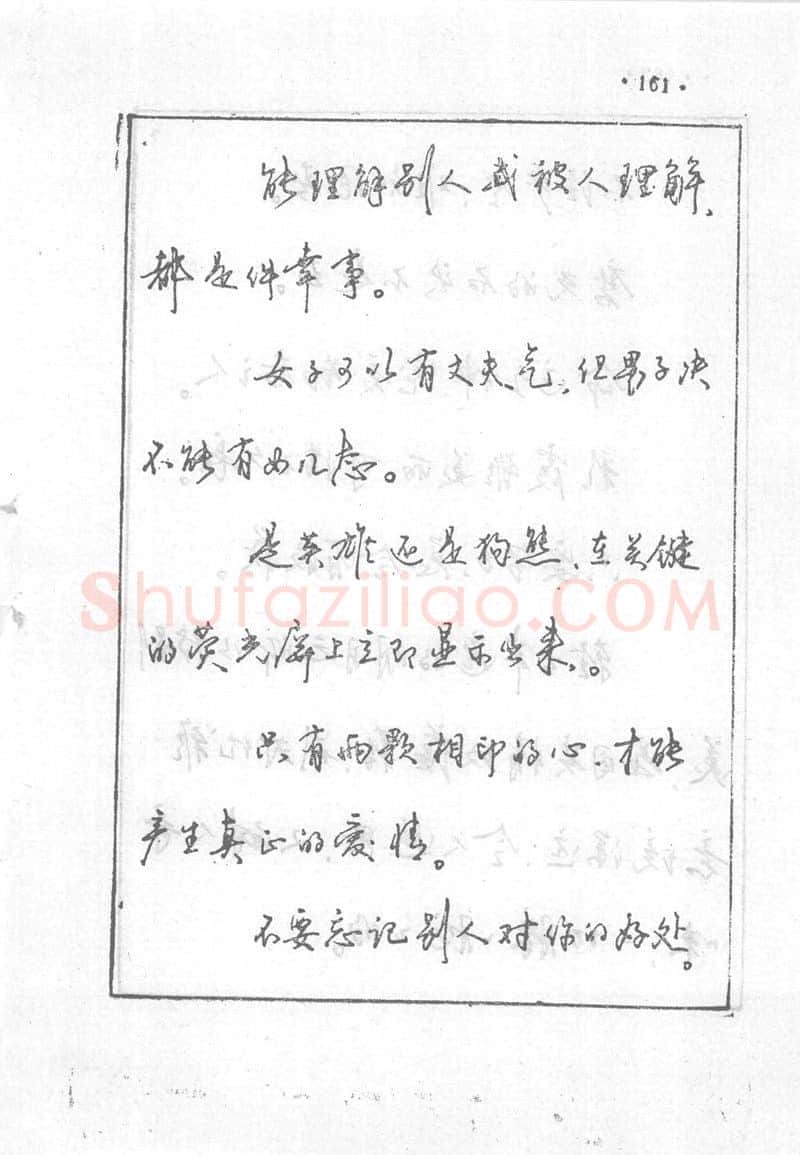 ·161·
能理解别人或被人理解，
都是件幸事。
女子可以有丈夫气，但男子决
不能有女儿态。
是英雄还是狗熊，在关键
的荧光屏上立即显示出来。
只有两颗相印的心，才能
产生真正的爱情。
不要忘记别人对你的好处。
Shufaziliao.COM